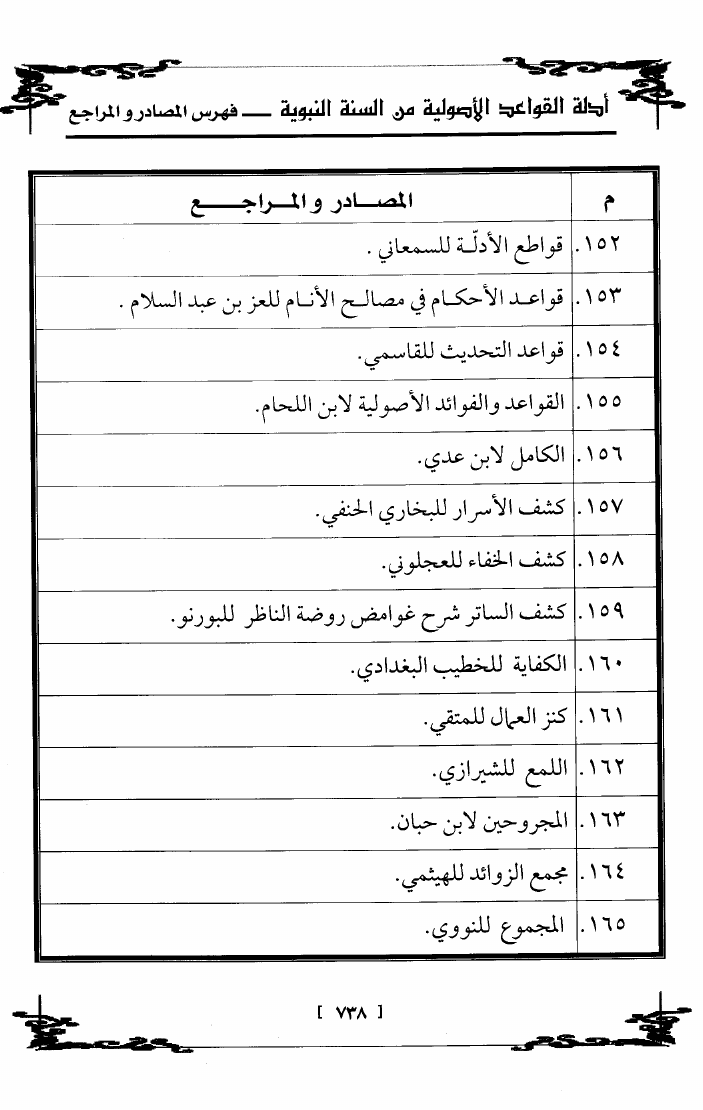 أدلة القواعد الأصولية من السنة النبوية ـــ فهرس المصادر و المراجع
م المصـــادر و المـــراجـــع
١٥٢. قواطع الأدلّـة للسمعاني .
١٥٣. قواعـد الأحكـام في مصالـح الأنـام للعز بن عبد السلام .
١٥٤. قواعد التحديث للقاسمي.
١٥٥. القواعد والفوائد الأصولية لابن اللحام.
١٥٦. الكامل لابن عدي.
١٥٧. كشف الأسرار للبخاري الحنفي.
١٥٨. كشف الخفاء للعجلوني.
١٥٩. كشف الساتر شرح غوامض روضة الناظر للبورنو.
١٦٠. الكفاية للخطيب البغدادي.
١٦١. كنز العمال للمتقي.
١٦٢. اللمع للشيرازي.
١٦٣. المجروحين لابن حبان.
١٦٤. مجمع الزوائد للهيثمي.
١٦٥. المجموع للنووي.
[ ٧٣٨ ]